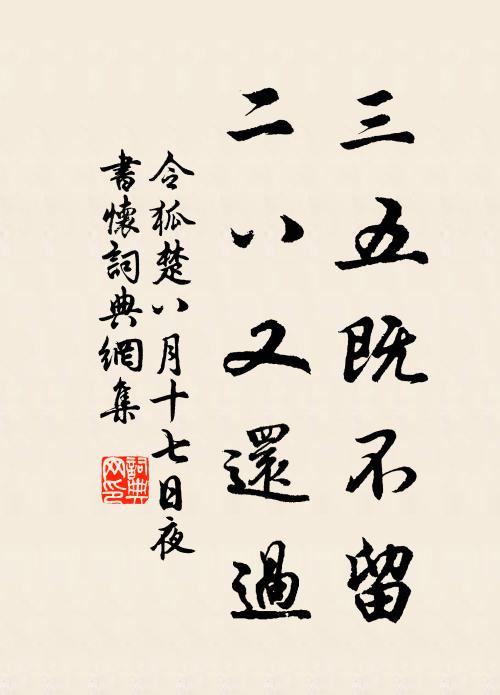 三五既不留
二八又還過
令狐楚八月十七日夜
書懷詞典網集
詞典
网印